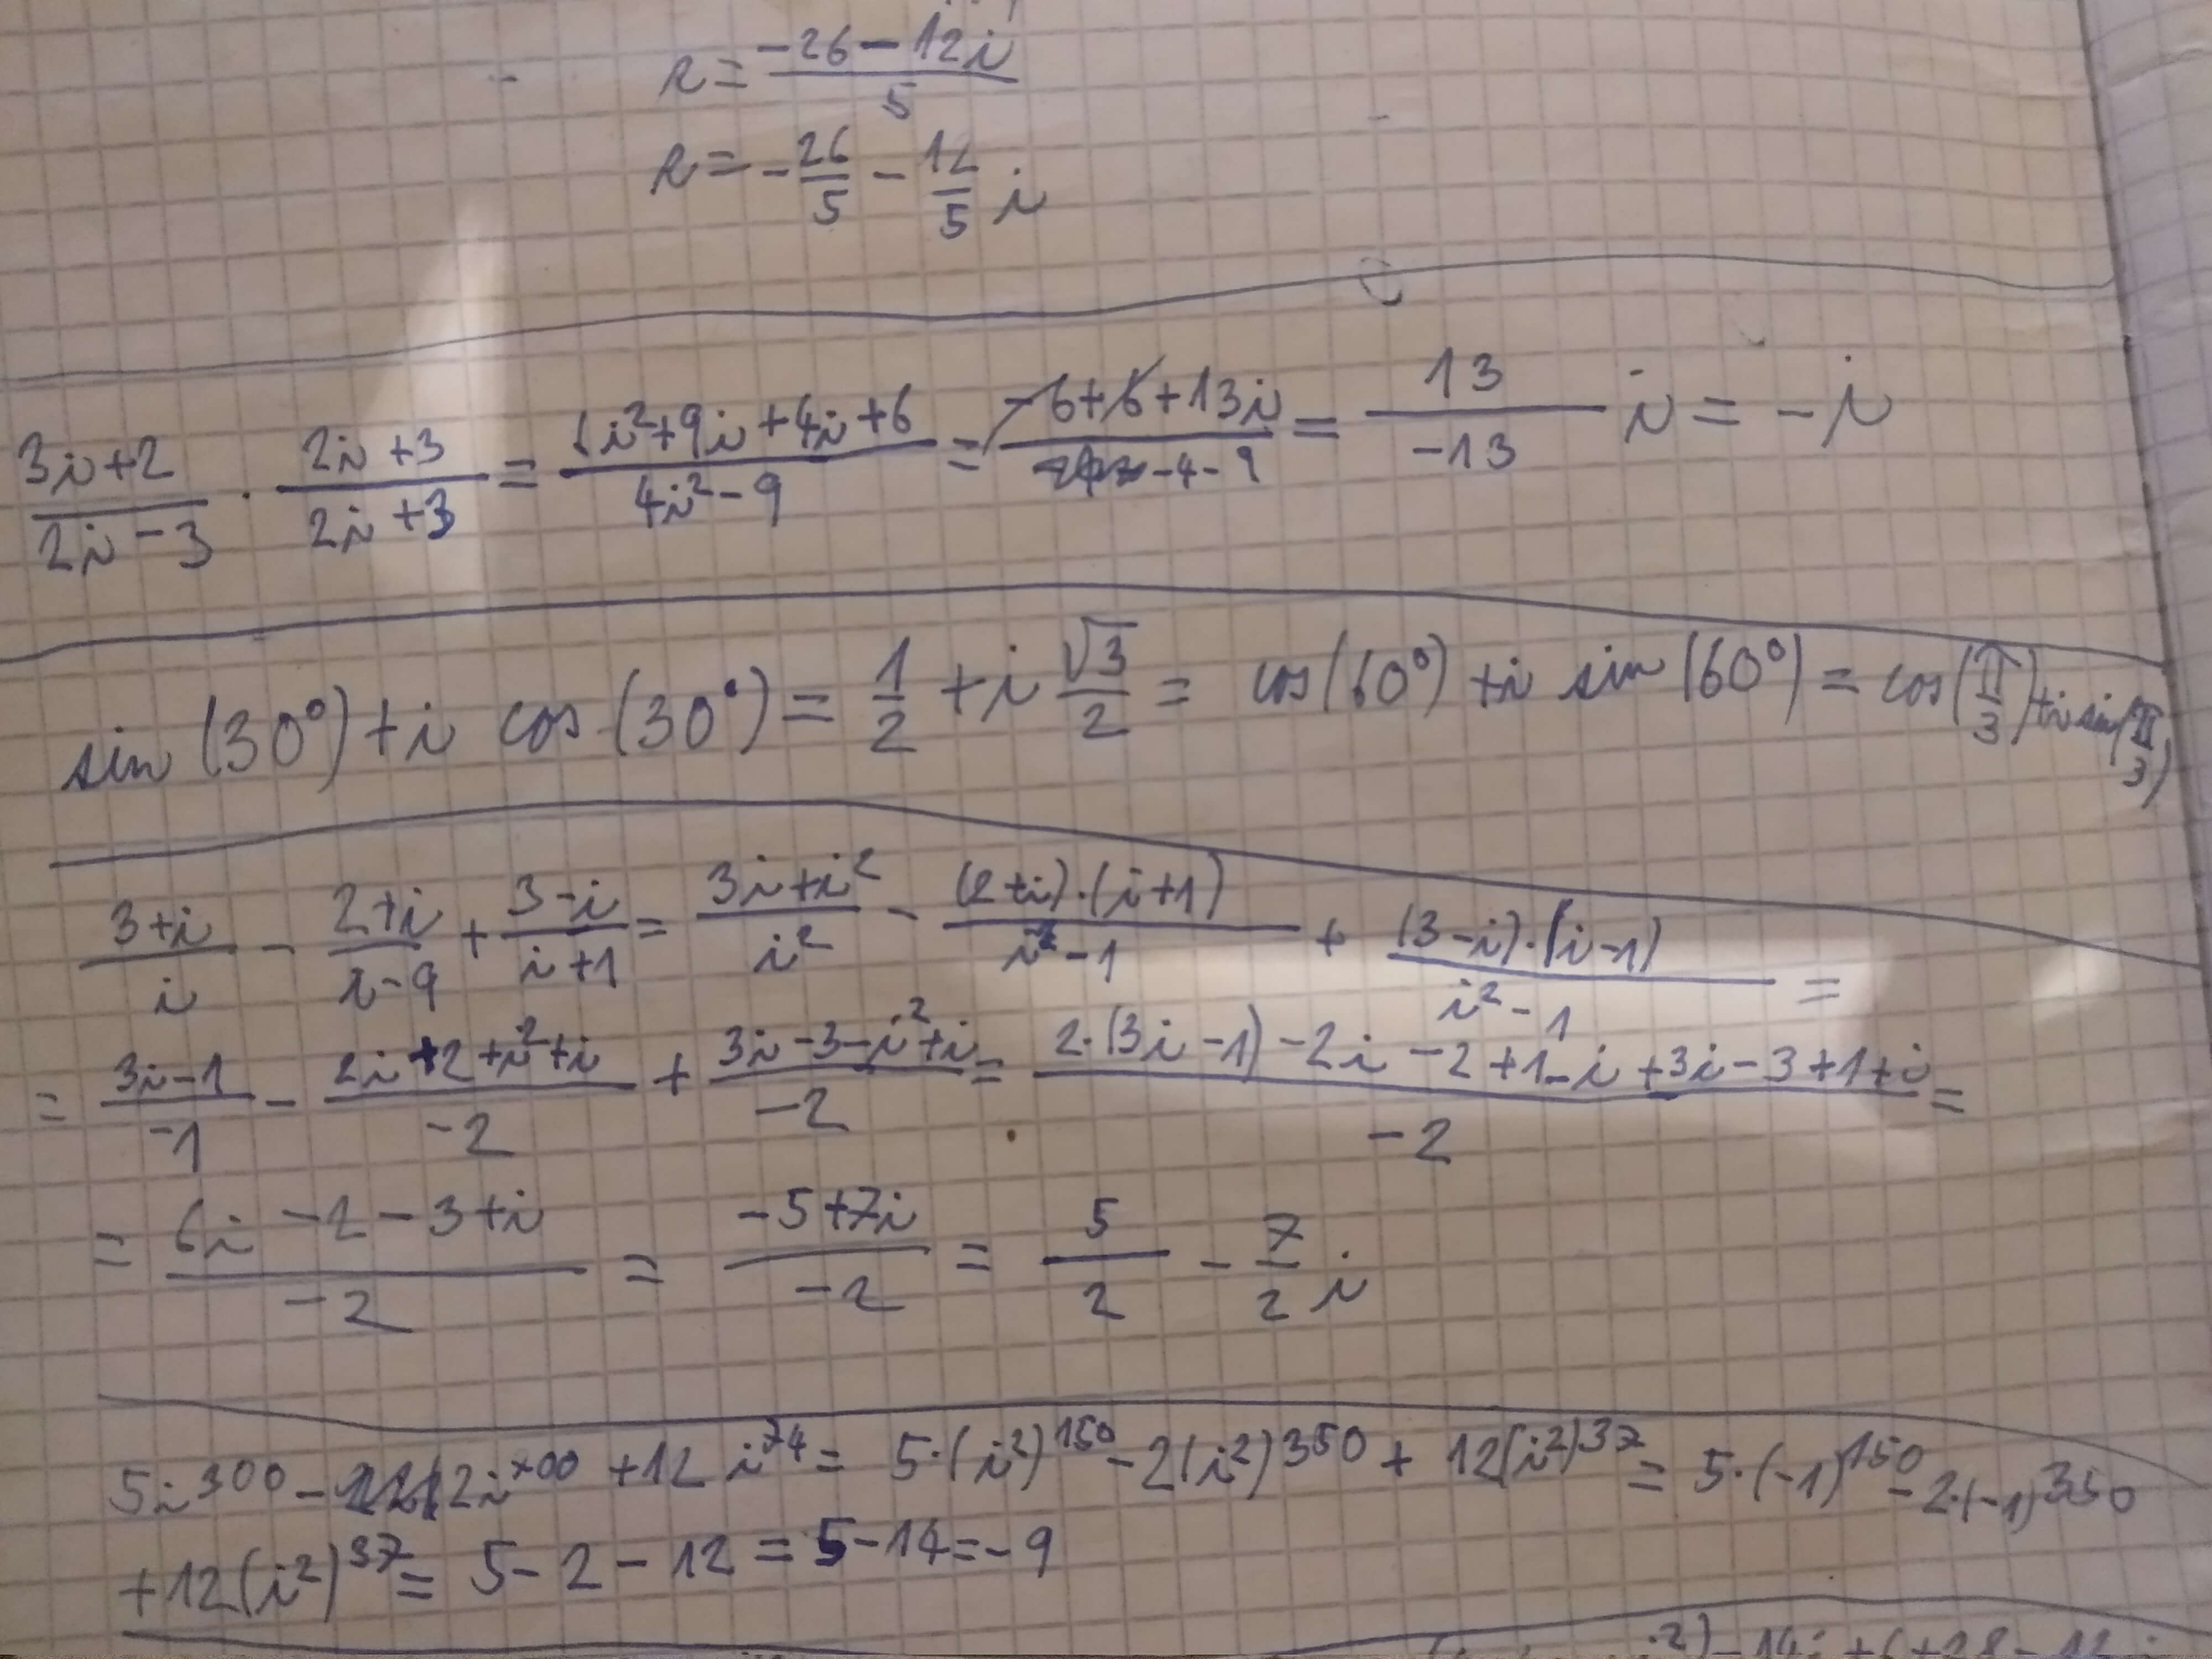 r = (-26 - 12i)/5
r = -26/5 - 12/5 i
(3i+2)/(2i-3) · (2i+3)/(2i+3) = (6i²+9i+4i+6)/(4i²-9) = (-6+6+13i)/(-4-9) = 13/(-13) i = -i
sin(30°) + i cos(30°) = 1/2 + i √3/2 = cos(60°) + i sin(60°) = cos(π/3) + i sin(π/3)
(3+i)/i - (2+i)/(i-9) + (3-i)/(i+1) = (3i+i²)/i² - ((2+i)·(i+1))/(i²-1) + ((3-i)·(i-1))/(i²-1) =
= (3i-1)/(-1) - (2i+2+i²+i)/(-2) + (3i-3-i²+i)/(-2) = (2·(3i-1)-2i-2+1-i+3i-3+1+i)/(-2) =
= (6i-2-3+i)/(-2) = (-5+7i)/(-2) = 5/2 - 7/2 i
5i³⁰⁰ - 2i⁷⁰⁰ + 12i⁷⁴ = 5·(i²)¹⁵⁰ - 2(i²)³⁵⁰ + 12(i²)³⁷ = 5·(-1)¹⁵⁰ - 2·(-1)³⁵⁰
+12(i²)³⁷ = 5-2-12 = 5-14 = -9